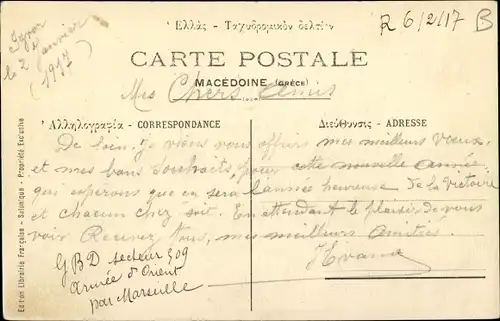 Ἑλλὰς - Ταχυδρομικὸν δελτίον
R 6/2/17 B
le 2 Janvier
(1917
CARTE POSTALE
MACÉDOINE (GRÈCE)
Mes Chers Amis
Ἀλληλογραφία - CORRESPONDANCE
Διεύθυνσις - ADRESSE
De loin, je viens vous offrir mes meilleurs Vœux
et mes bons Souhaits, pour cette nouvelle Année
qui espérons que ça sera l'année heureuse de la Victoire
et chacun chez soit. En attendant le plaisir de vous
voir Recevez tous, mes meilleurs Amitiés.
GBD secteur 509
Armée d'Orient
par Marseille
Edition Librairie Française - Salonique - Propriété Exclusive